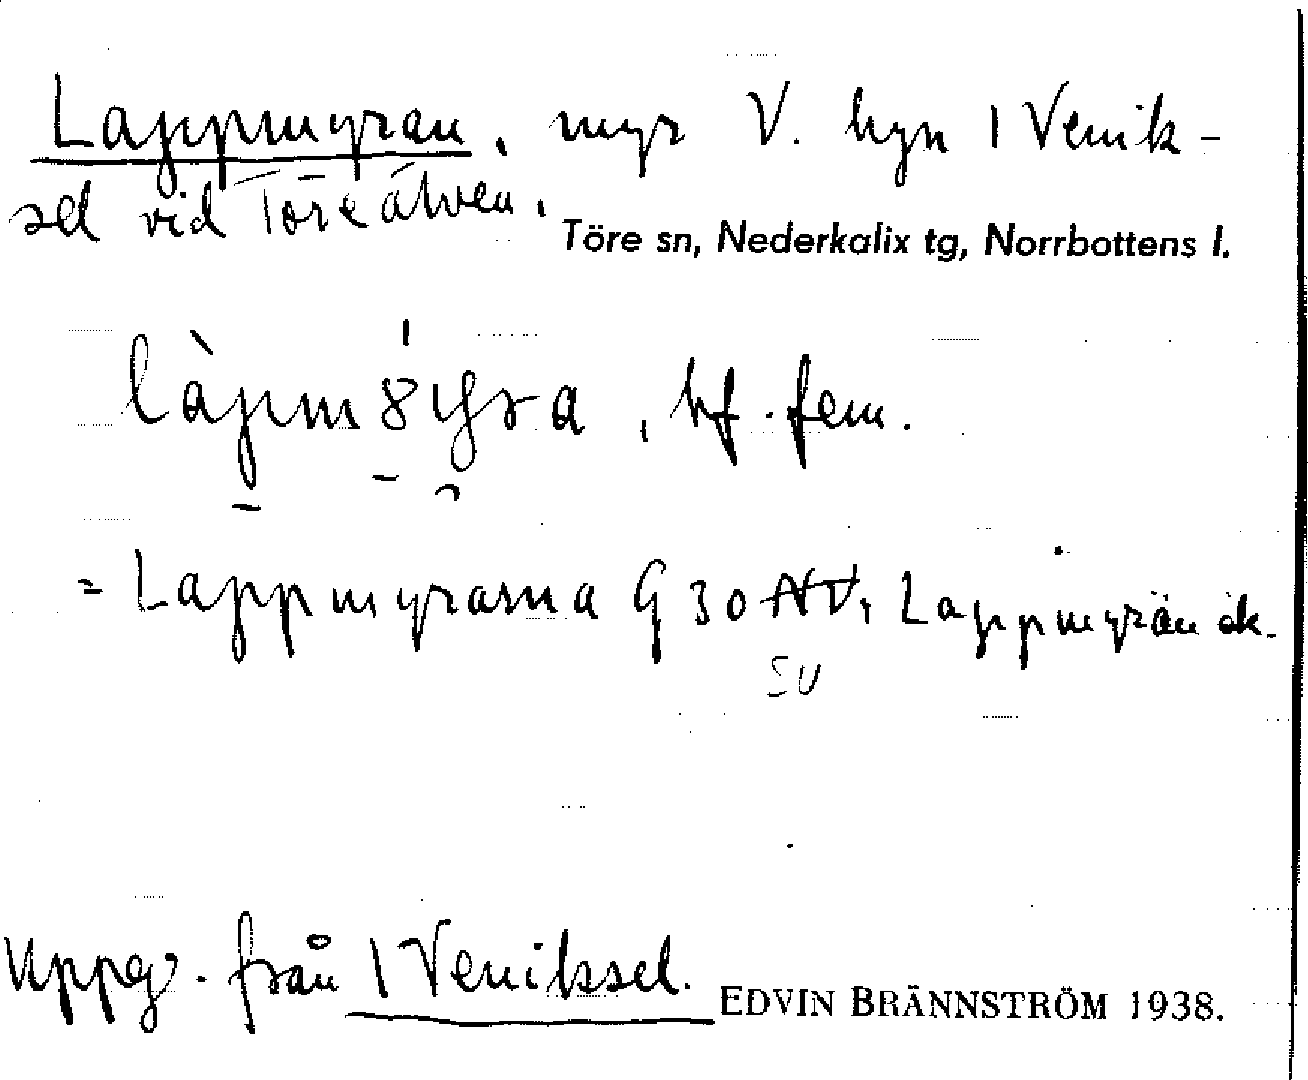 Lappmyran, myr V. hgn 1 Venik-
sel vid Töreälven.
Töre sn, Nederkalix tg, Norrbottens l.
bf. fem.
= Lappmyrarna G 30 SV, Lappmyrän ek.
Uppg. från 1 Veniksel.
EDVIN BRÄNNSTRÖM 1938.